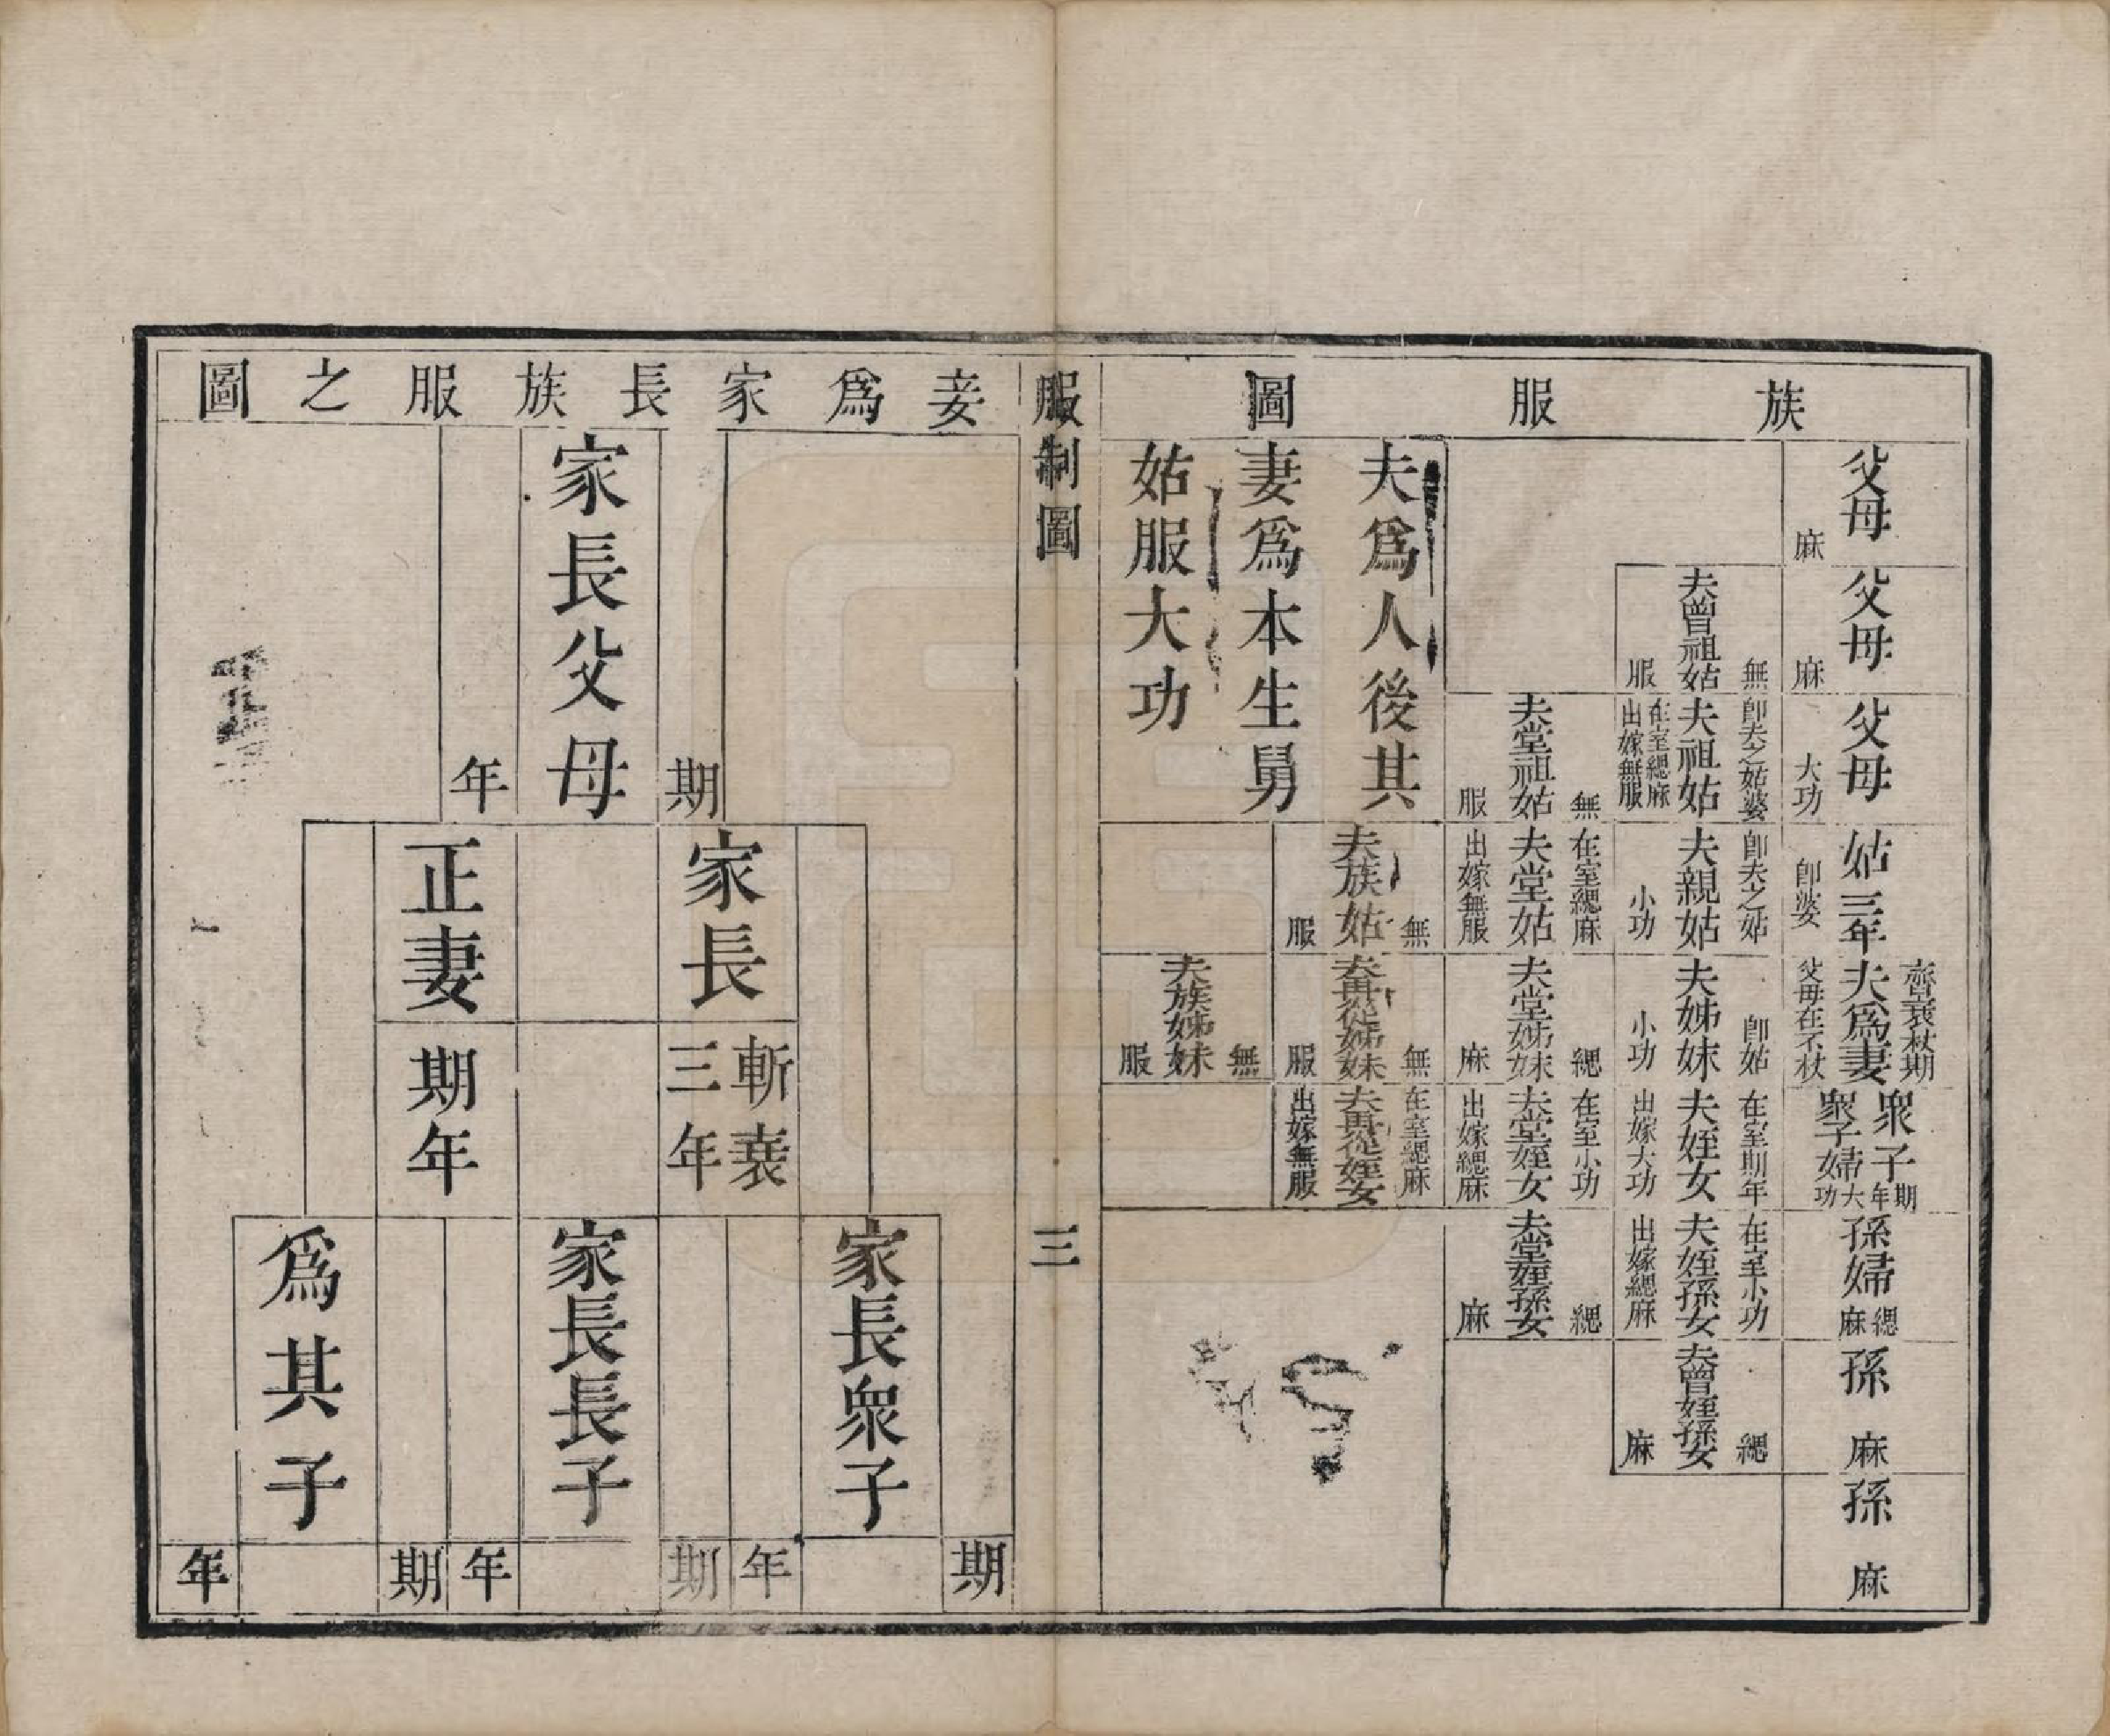 族服圖
父母
麻
父母
麻
父母
大功
姑三年
即婆
齊衰杖期
夫爲妻
父母在不杖
衆子
期年
衆子婦
大功
孫婦
緦麻
孫
麻
孫
麻
無
夫曾祖姑
服
即夫之姑婆
夫祖姑
在室緦麻
出嫁無服
即夫之姑
夫親姑
小功
即姑
夫姊妹
小功
在室期年
夫姪女
出嫁大功
在室小功
夫姪孫女
出嫁緦麻
緦
夫曾姪孫女
麻
無
夫堂祖姑
服
在室緦麻
夫堂姑
出嫁無服
緦
夫堂姊妹
麻
在室小功
夫堂姪女
出嫁緦麻
緦
夫堂姪孫女
麻
夫爲人後其
妻爲本生舅
姑服大功
無
夫族姑
服
無
夫再從姊妹
服
在室緦麻
夫再從姪女
出嫁無服
無
夫族姊妹
服
服制圖
三
妾爲家長族服之圖
期
家長父母
年
家長
斬衰
三年
正妻
期年
期
家長衆子
年
期
家長長子
年
期
爲其子
年